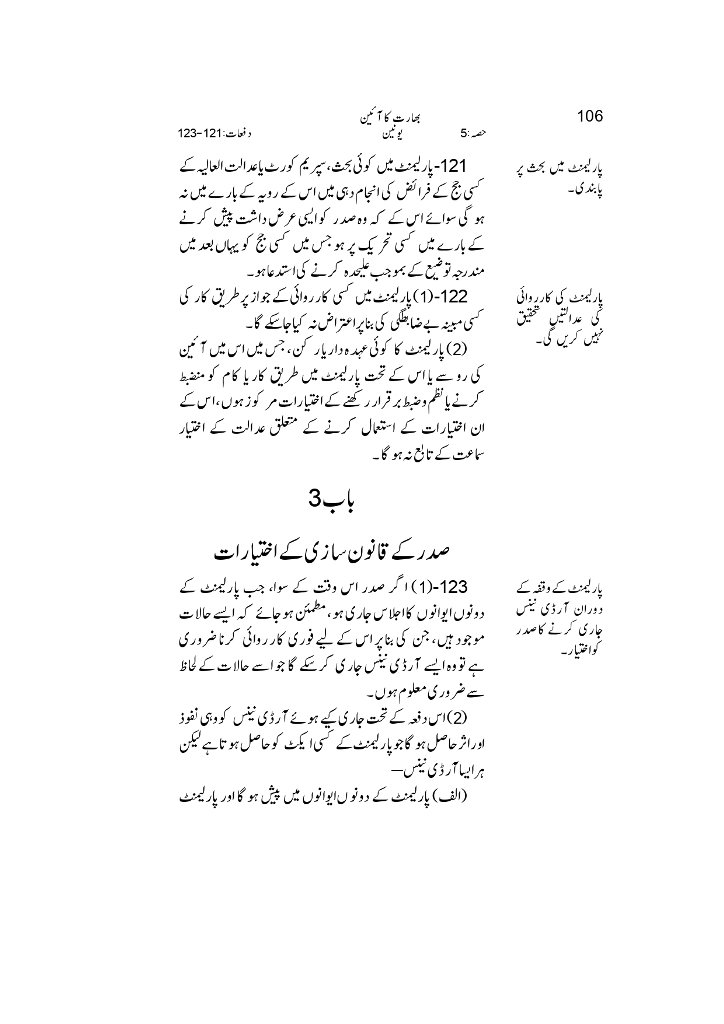 106
بھارت کا آئین
حصہ :5 یونین دفعات:121–123
پارلیمنٹ میں بحث پر
پابندی۔
121-پارلیمنٹ میں کوئی بحث، سپریم کورٹ یا عدالت العالیہ کے
کسی جج کے فرائض کی انجام دہی میں اس کے رویہ کے بارے میں نہ
ہو گی سوائے اس کے کہ وہ صدر کو ایسی عرض داشت پیش کرنے
کے بارے میں کسی تحریک پر ہو جس میں کسی جج کو یہاں بعد میں
مندرجہ توضیع کے بموجب علیحدہ کرنے کی استدعا ہو۔
پارلیمنٹ کی کارروائی
کی عدالتیں تحقیق
نہیں کریں گی۔
122-(1) پارلیمنٹ میں کسی کارروائی کے جواز پر طریق کار کی
کسی مبینہ بے ضابطگی کی بنا پر اعتراض نہ کیا جاسکے گا۔
(2) پارلیمنٹ کا کوئی عہدہ دار یا رکن، جس میں اس میں آئین
کی رو سے یا اس کے تحت پارلیمنٹ میں طریق کار یا کام کو منضبط
کرنے یا نظم و ضبط برقرار رکھنے کے اختیارات مرکوز ہوں، اس کے
ان اختیارات کے استعمال کرنے کے متعلق عدالت کے اختیار
سماعت کے تابع نہ ہو گا۔
باب 3
صدر کے قانون سازی کے اختیارات
پارلیمنٹ کے وقفہ کے
دوران آرڈی نینس
جاری کرنے کا صدر
کو اختیار۔
123-(1) اگر صدر اس وقت کے سوا، جب پارلیمنٹ کے
دونوں ایوانوں کا اجلاس جاری ہو، مطمئن ہو جائے کہ ایسے حالات
موجود ہیں، جن کی بنا پر اس کے لیے فوری کارروائی کرنا ضروری
ہے تو وہ ایسے آرڈی نینس جاری کرسکے گا جو اسے حالات کے لحاظ
سے ضروری معلوم ہوں۔
(2) اس دفعہ کے تحت جاری کیے ہوئے آرڈی نینس کو وہی نفوذ
اور اثر حاصل ہو گا جو پارلیمنٹ کے کسی ایکٹ کو حاصل ہوتا ہے لیکن
ہر ایسا آرڈی نینس—
(الف) پارلیمنٹ کے دونوں ایوانوں میں پیش ہو گا اور پارلیمنٹ